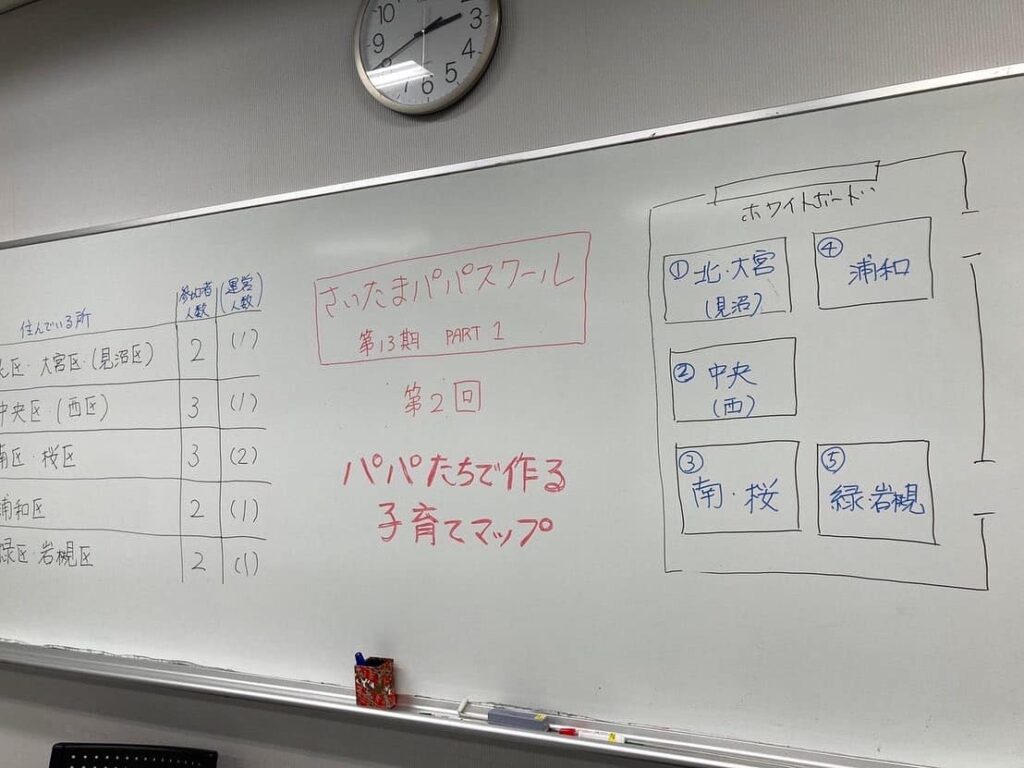 10
9
8
7
6
5
4
3
2
住んでいる所 参加者人数 (運営人数)
北区・大宮区・(見沼区) 2 (1)
中央区・(西区) 3 (1)
南区・桜区 3 (2)
浦和区 2 (1)
緑区・岩槻区 2 (1)
さいたまパパスクール
第13期 PART 1
第2回
パパたちで作る
子育てマップ
ホワイトボード
① 北・大宮
(見沼)
④ 浦和
② 中央
(西)
③ 南・桜
⑤ 緑・岩槻